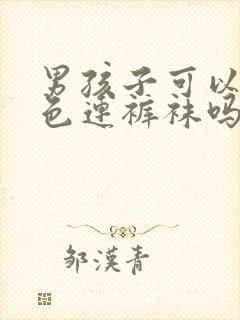 男孩子可以
色連裤袜吗
邹漢青